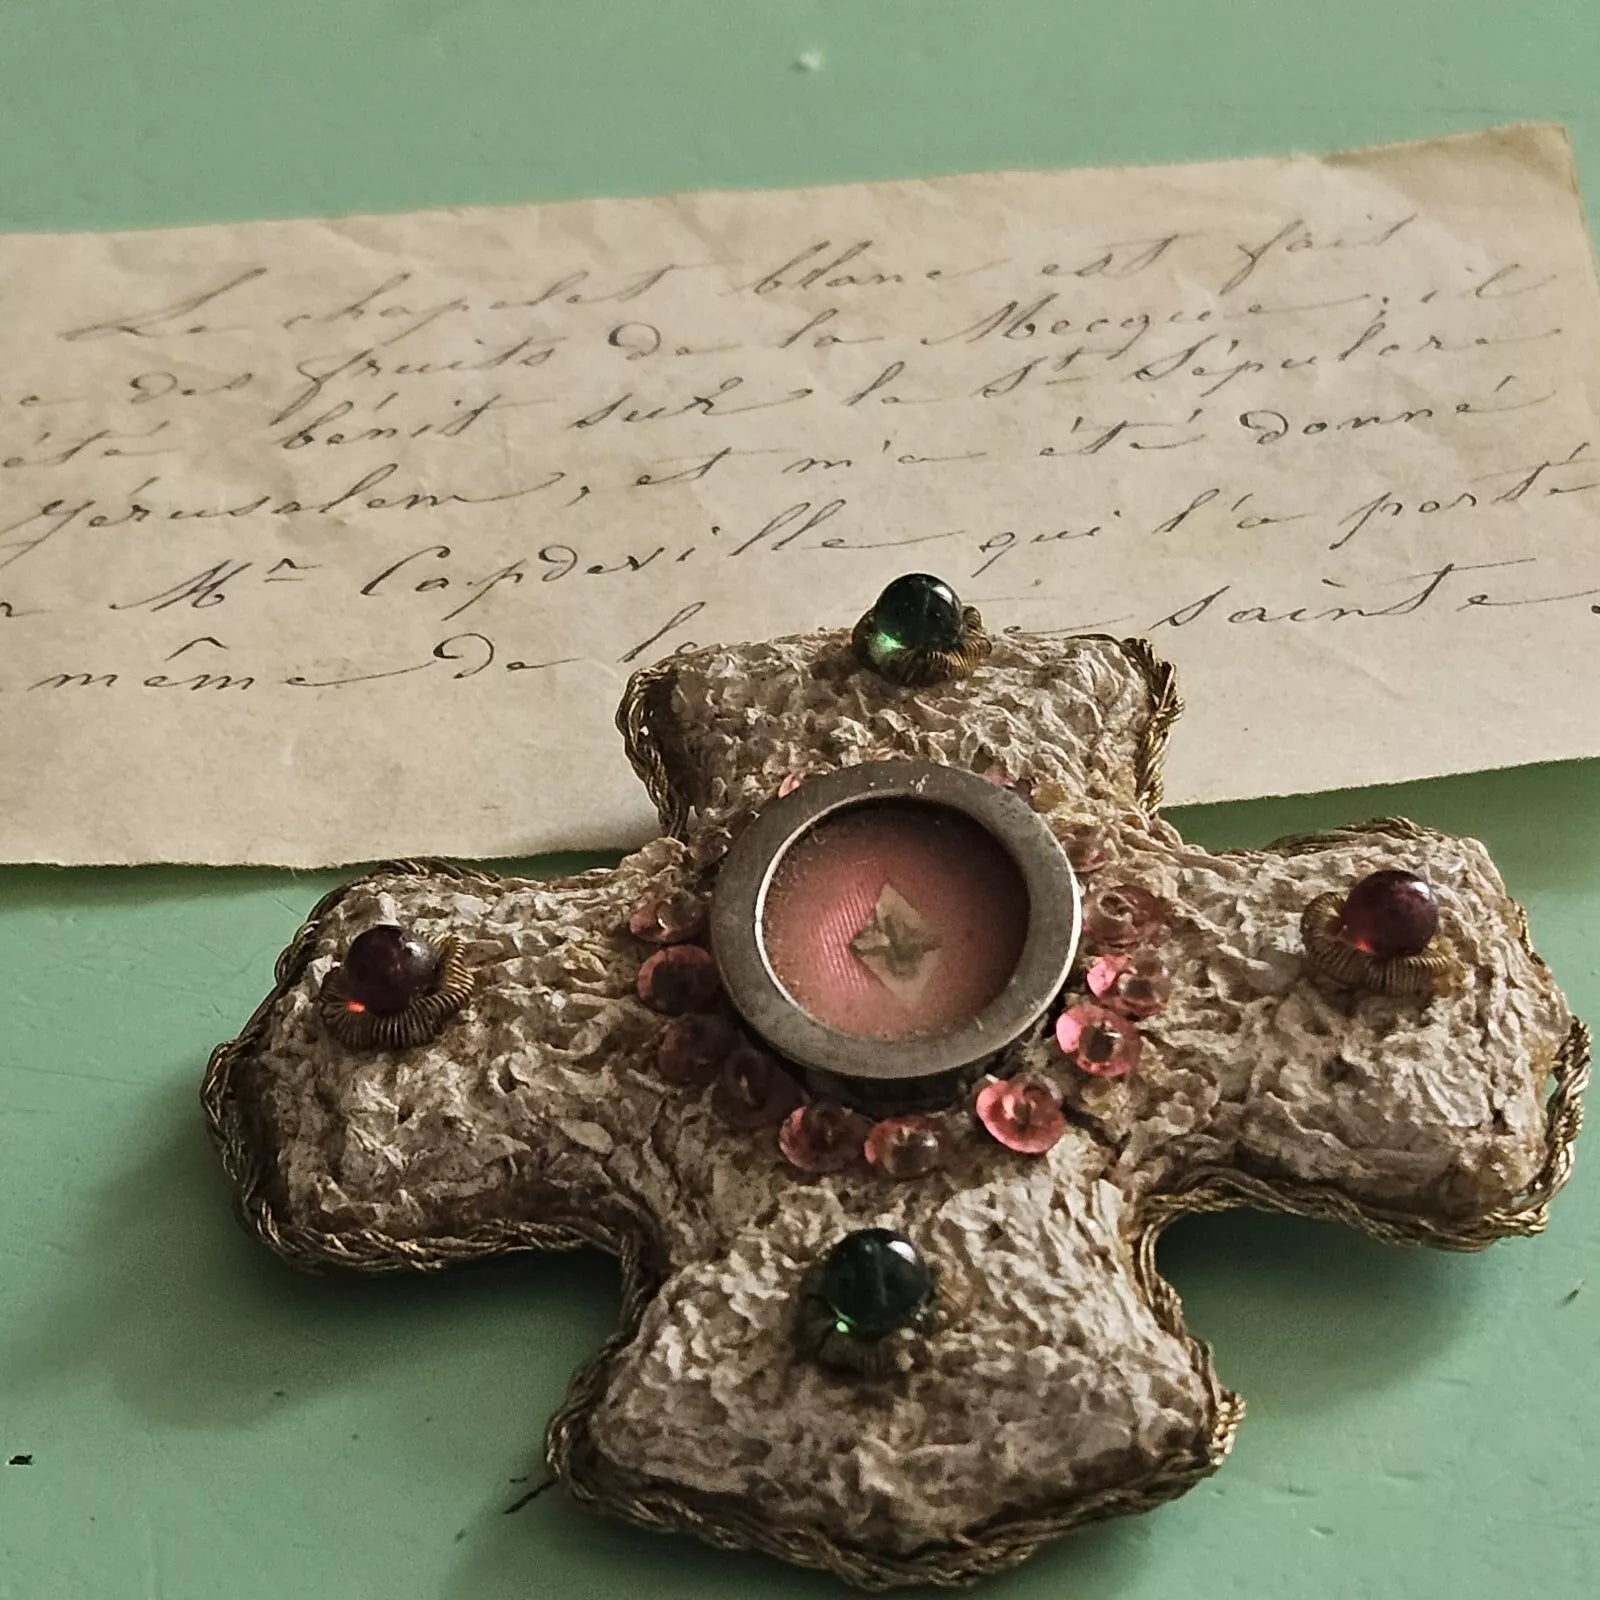 Le chapelet blanc est fait
des fruits de la Mecque; il
été bénit sur le St Sépulcre
Jérusalem, et m'a été donné
Mr Capdeville qui l'a porté
même de la sainte